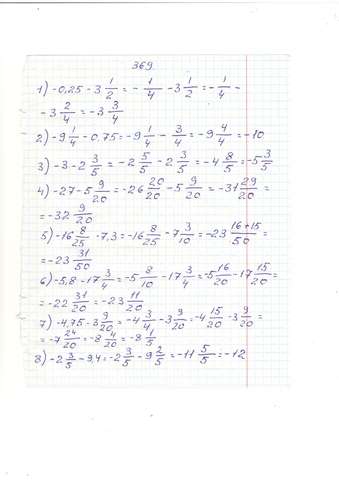 369
1) -0,25 - 3 1/2 = - 1/4 - 3 1/2 = - 1/4 -
- 3 2/4 = -3 3/4
2) -9 1/4 - 0,75 = -9 1/4 - 3/4 = -9 4/4 = -10
3) -3 - 2 3/5 = -2 5/5 - 2 3/5 = -4 8/5 = -5 3/5
4) -27 - 5 9/20 = -26 20/20 - 5 9/20 = -31 29/20 =
= -32 9/20
5) -16 8/25 - 7,3 = -16 8/25 - 7 3/10 = -23 16+15/50 =
= -23 31/50
6) -5,8 - 17 3/4 = -5 8/10 - 17 3/4 = -5 16/20 - 17 15/20 =
= -22 31/20 = -23 11/20
7) -4,75 - 3 9/20 = -4 3/4 - 3 9/20 = -4 15/20 - 3 9/20 =
= -7 24/20 = -8 4/20 = -8 1/5
8) -2 3/5 - 9,4 = -2 3/5 - 9 2/5 = -11 5/5 = -12